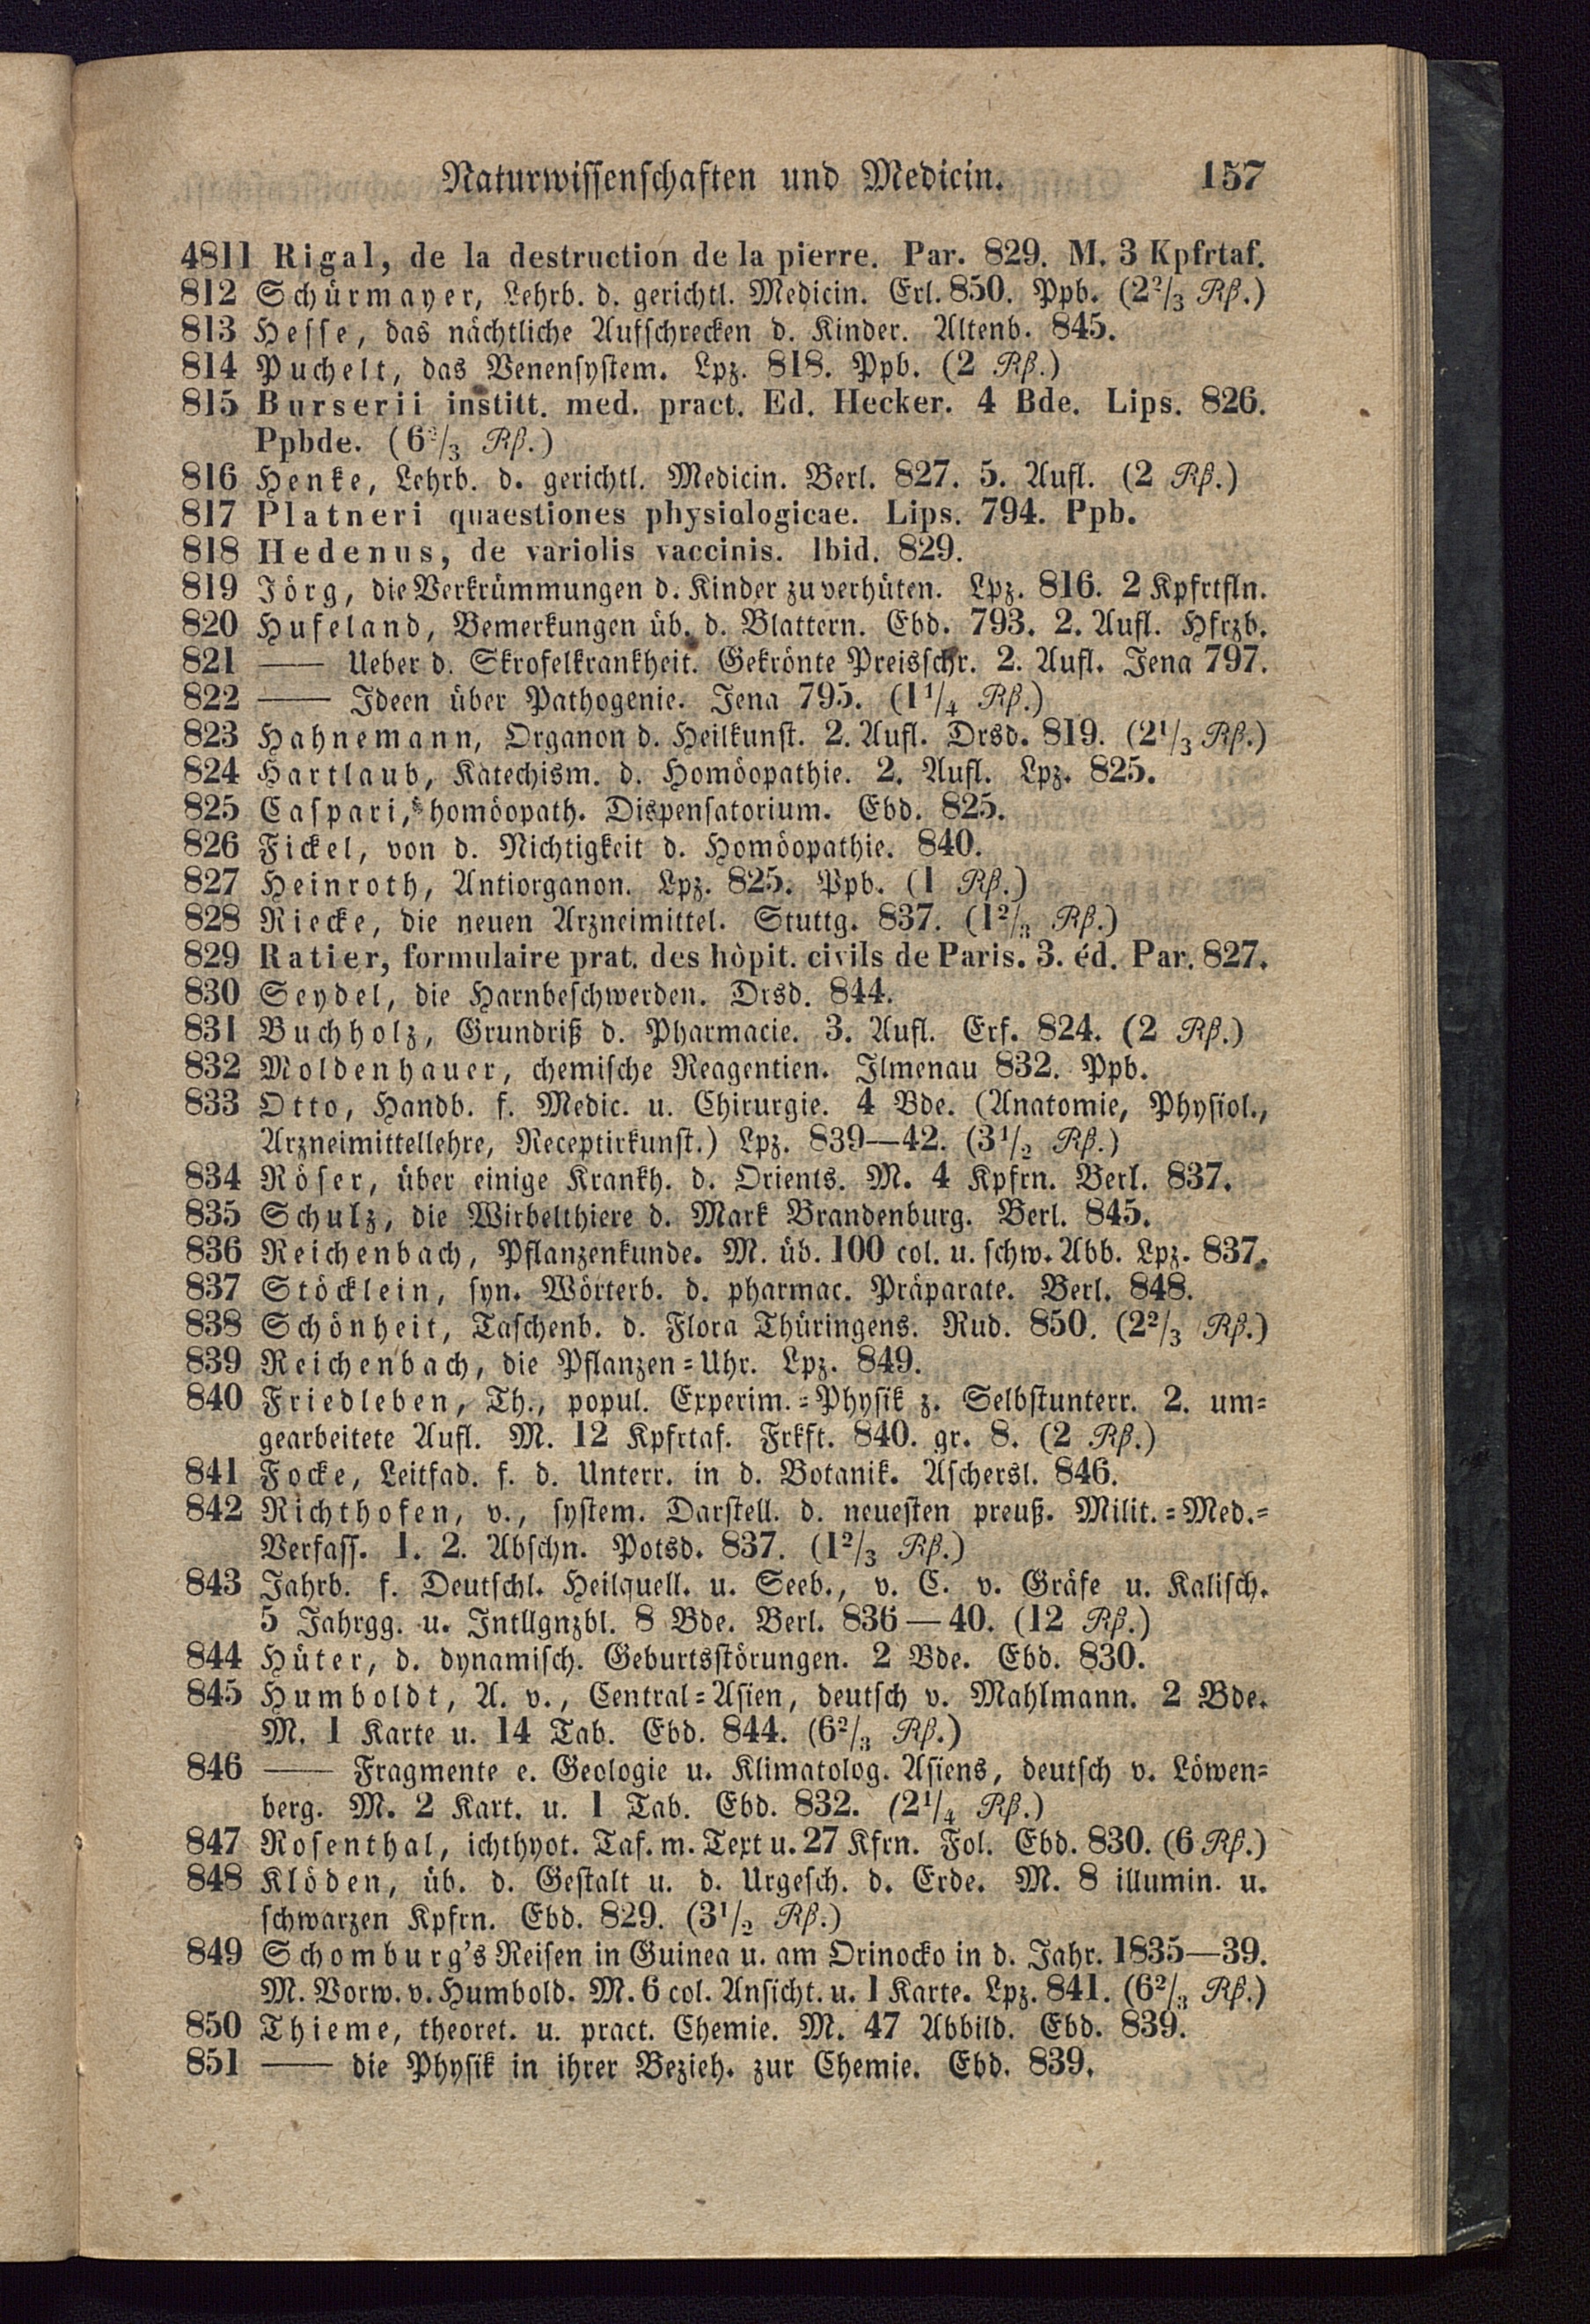 Naturwissenschaften und Medicin. 157
4811 Rigal, de la destruction de la pierre. Par. 829. M. 3 Kpfrtaf.
812 Schürmayer, Lehrb. d. gerichtl. Medicin. Erl. 850. Ppb. (2²/₃ Rß.)
813 Hesse, das nächtliche Aufschrecken d. Kinder. Altenb. 845.
814 Puchelt, das Venensystem. Lpz. 818. Ppb. (2 Rß.)
815 Burserii institt. med. pract. Ed. Hecker. 4 Bde. Lips. 826.
Ppbde. (6²/₃ Rß.)
816 Henke, Lehrb. d. gerichtl. Medicin. Berl. 827. 5. Aufl. (2 Rß.)
817 Platneri quaestiones physiologicae. Lips. 794. Ppb.
818 Hedenus, de variolis vaccinis. Ibid. 829.
819 Jörg, die Verkrümmungen d. Kinder zu verhüten. Lpz. 816. 2 Kpfrtfln.
820 Hufeland, Bemerkungen üb. d. Blattern. Ebd. 793. 2. Aufl. Hfrzb.
821 —— Ueber d. Skrofelkrankheit. Gekrönte Preisschr. 2. Aufl. Jena 797.
822 —— Ideen über Pathogenie. Jena 795. (1¹/₄ Rß.)
823 Hahnemann, Organon d. Heilkunst. 2. Aufl. Drsd. 819. (2¹/₃ Rß.)
824 Hartlaub, Katechism. d. Homöopathie. 2. Aufl. Lpz. 825.
825 Caspari, homöopath. Dispensatorium. Ebd. 825.
826 Fickel, von d. Nichtigkeit d. Homöopathie. 840.
827 Heinroth, Antiorganon. Lpz. 825. Ppb. (1 Rß.)
828 Riecke, die neuen Arzneimittel. Stuttg. 837. (1²/₃ Rß.)
829 Ratier, formulaire prat. des hòpit. civils de Paris. 3. éd. Par. 827.
830 Seydel, die Harnbeschwerden. Drsd. 844.
831 Buchholz, Grundriß d. Pharmacie. 3. Aufl. Erf. 824. (2 Rß.)
832 Moldenhauer, chemische Reagentien. Ilmenau 832. Ppb.
833 Otto, Handb. f. Medic. u. Chirurgie. 4 Bde. (Anatomie, Physiol.,
Arzneimittellehre, Receptirkunst.) Lpz. 839—42. (3¹/₂ Rß.)
834 Röser, über einige Krankh. d. Orients. M. 4 Kpfrn. Berl. 837.
835 Schulz, die Wirbelthiere d. Mark Brandenburg. Berl. 845.
836 Reichenbach, Pflanzenkunde. M. üb. 100 col. u. schw. Abb. Lpz. 837.
837 Stöcklein, syn. Wörterb. d. pharmac. Präparate. Berl. 848.
838 Schönheit, Taschenb. d. Flora Thüringens. Rud. 850. (2²/₃ Rß.)
839 Reichenbach, die Pflanzen=Uhr. Lpz. 849.
840 Friedleben, Th., popul. Experim.=Physik z. Selbstunterr. 2. um=
gearbeitete Aufl. M. 12 Kpfrtaf. Frkft. 840. gr. 8. (2 Rß.)
841 Focke, Leitfad. f. d. Unterr. in d. Botanik. Aschersl. 846.
842 Richthofen, v., system. Darstell. d. neuesten preuß. Milit.=Med.=
Verfass. 1. 2. Abschn. Potsd. 837. (1²/₃ Rß.)
843 Jahrb. f. Deutschl. Heilquell. u. Seeb., v. C. v. Gräfe u. Kalisch.
5 Jahrgg. u. Intllgnzbl. 8 Bde. Berl. 836—40. (12 Rß.)
844 Hüter, d. dynamisch. Geburtsstörungen. 2 Bde. Ebd. 830.
845 Humboldt, A. v., Central=Asien, deutsch v. Mahlmann. 2 Bde.
M. 1 Karte u. 14 Tab. Ebd. 844. (6²/₃ Rß.)
846 —— Fragmente e. Geologie u. Klimatolog. Asiens, deutsch v. Löwen=
berg. M. 2 Kart. u. 1 Tab. Ebd. 832. (2¹/₄ Rß.)
847 Rosenthal, ichthyot. Taf. m. Text u. 27 Kfrn. Fol. Ebd. 830. (6 Rß.)
848 Klöden, üb. d. Gestalt u. d. Urgesch. d. Erde. M. 8 illumin. u.
schwarzen Kpfrn. Ebd. 829. (3¹/₂ Rß.)
849 Schomburg's Reisen in Guinea u. am Orinocko in d. Jahr. 1835—39.
M. Vorw. v. Humbold. M. 6 col. Ansicht. u. 1 Karte. Lpz. 841. (6²/₃ Rß.)
850 Thieme, theoret. u. pract. Chemie. M. 47 Abbild. Ebd. 839.
851 —— die Physik in ihrer Bezieh. zur Chemie. Ebd. 839.